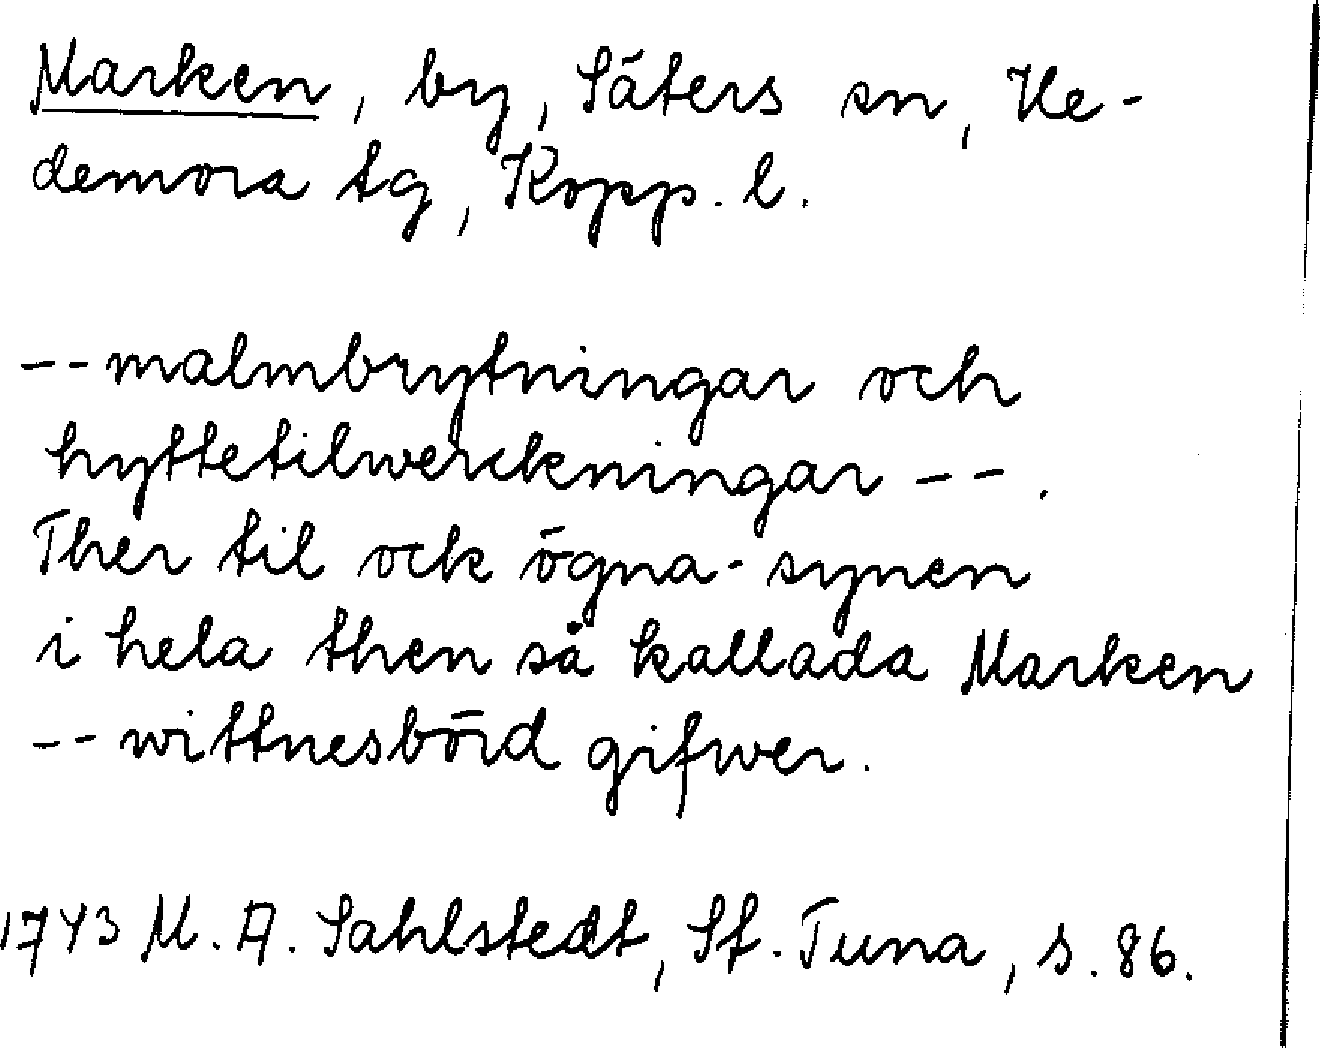 Marken, by, Säters sn, He-
demora tg, Kopp. l.
-- malmbrytningar och
hyttetilwerckningar -- .
Ther til ock ögna-synen
i hela then så kallada Marken
-- wittnesbörd gifwer.
1743 M. A. Sahlstedt, St. Tuna, s. 86.